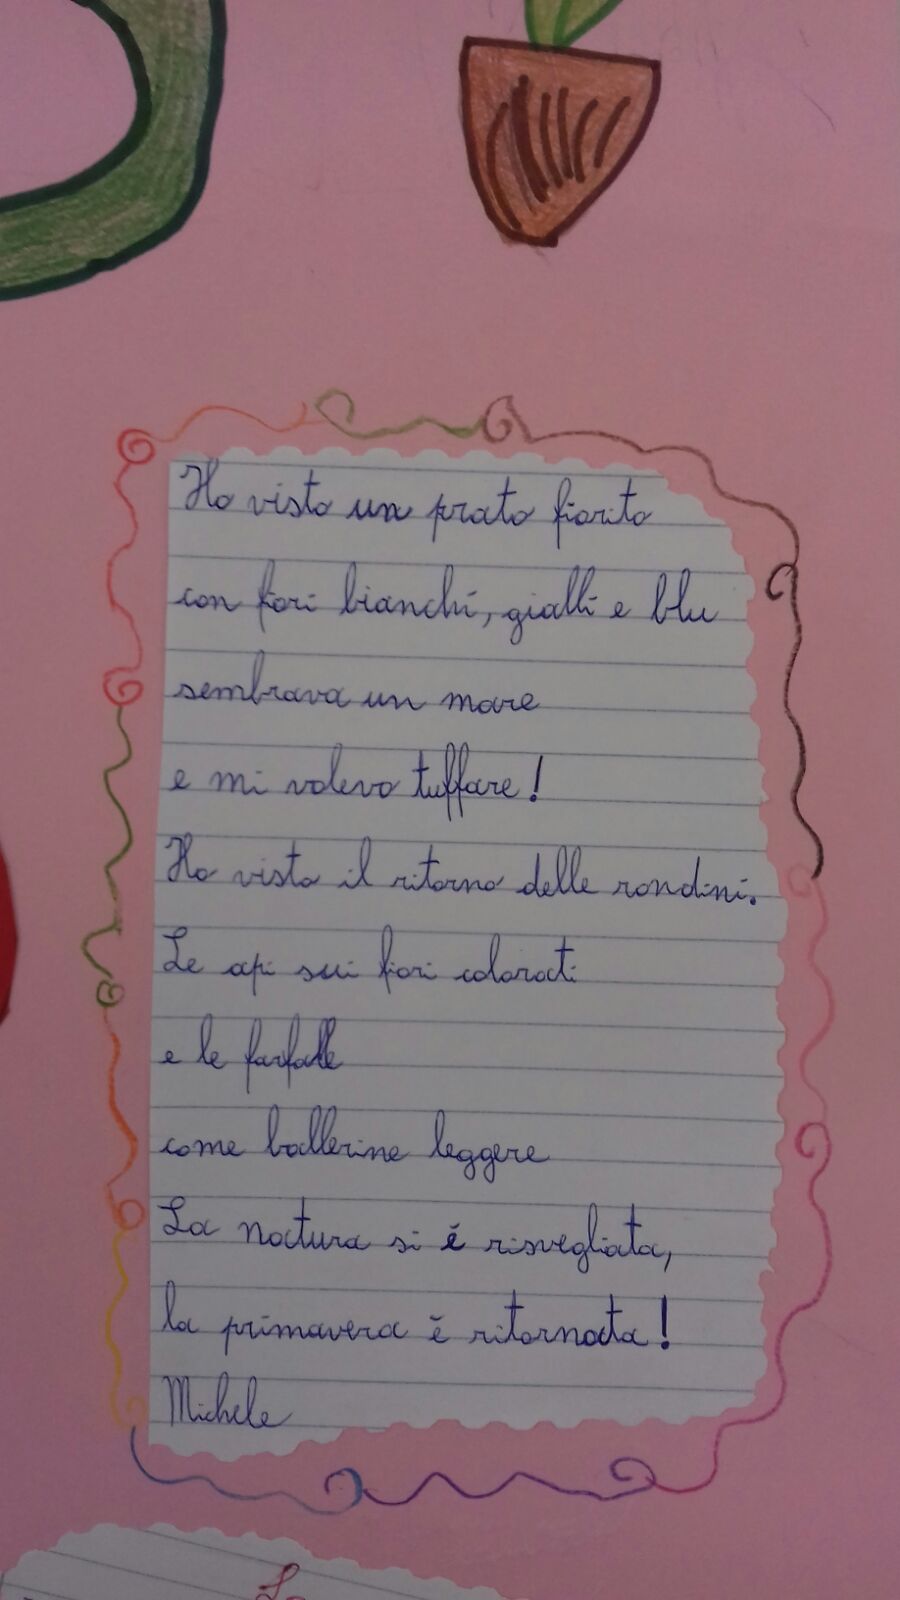 Ho visto un prato fiorito
con fiori bianchi, gialli e blu
sembrava un mare
e mi volevo tuffare!
Ho visto il ritorno delle rondini.
Le api sui fiori colorati
e le farfalle
come ballerine leggere
La natura si è risvegliata,
la primavera è ritornata!
Michele